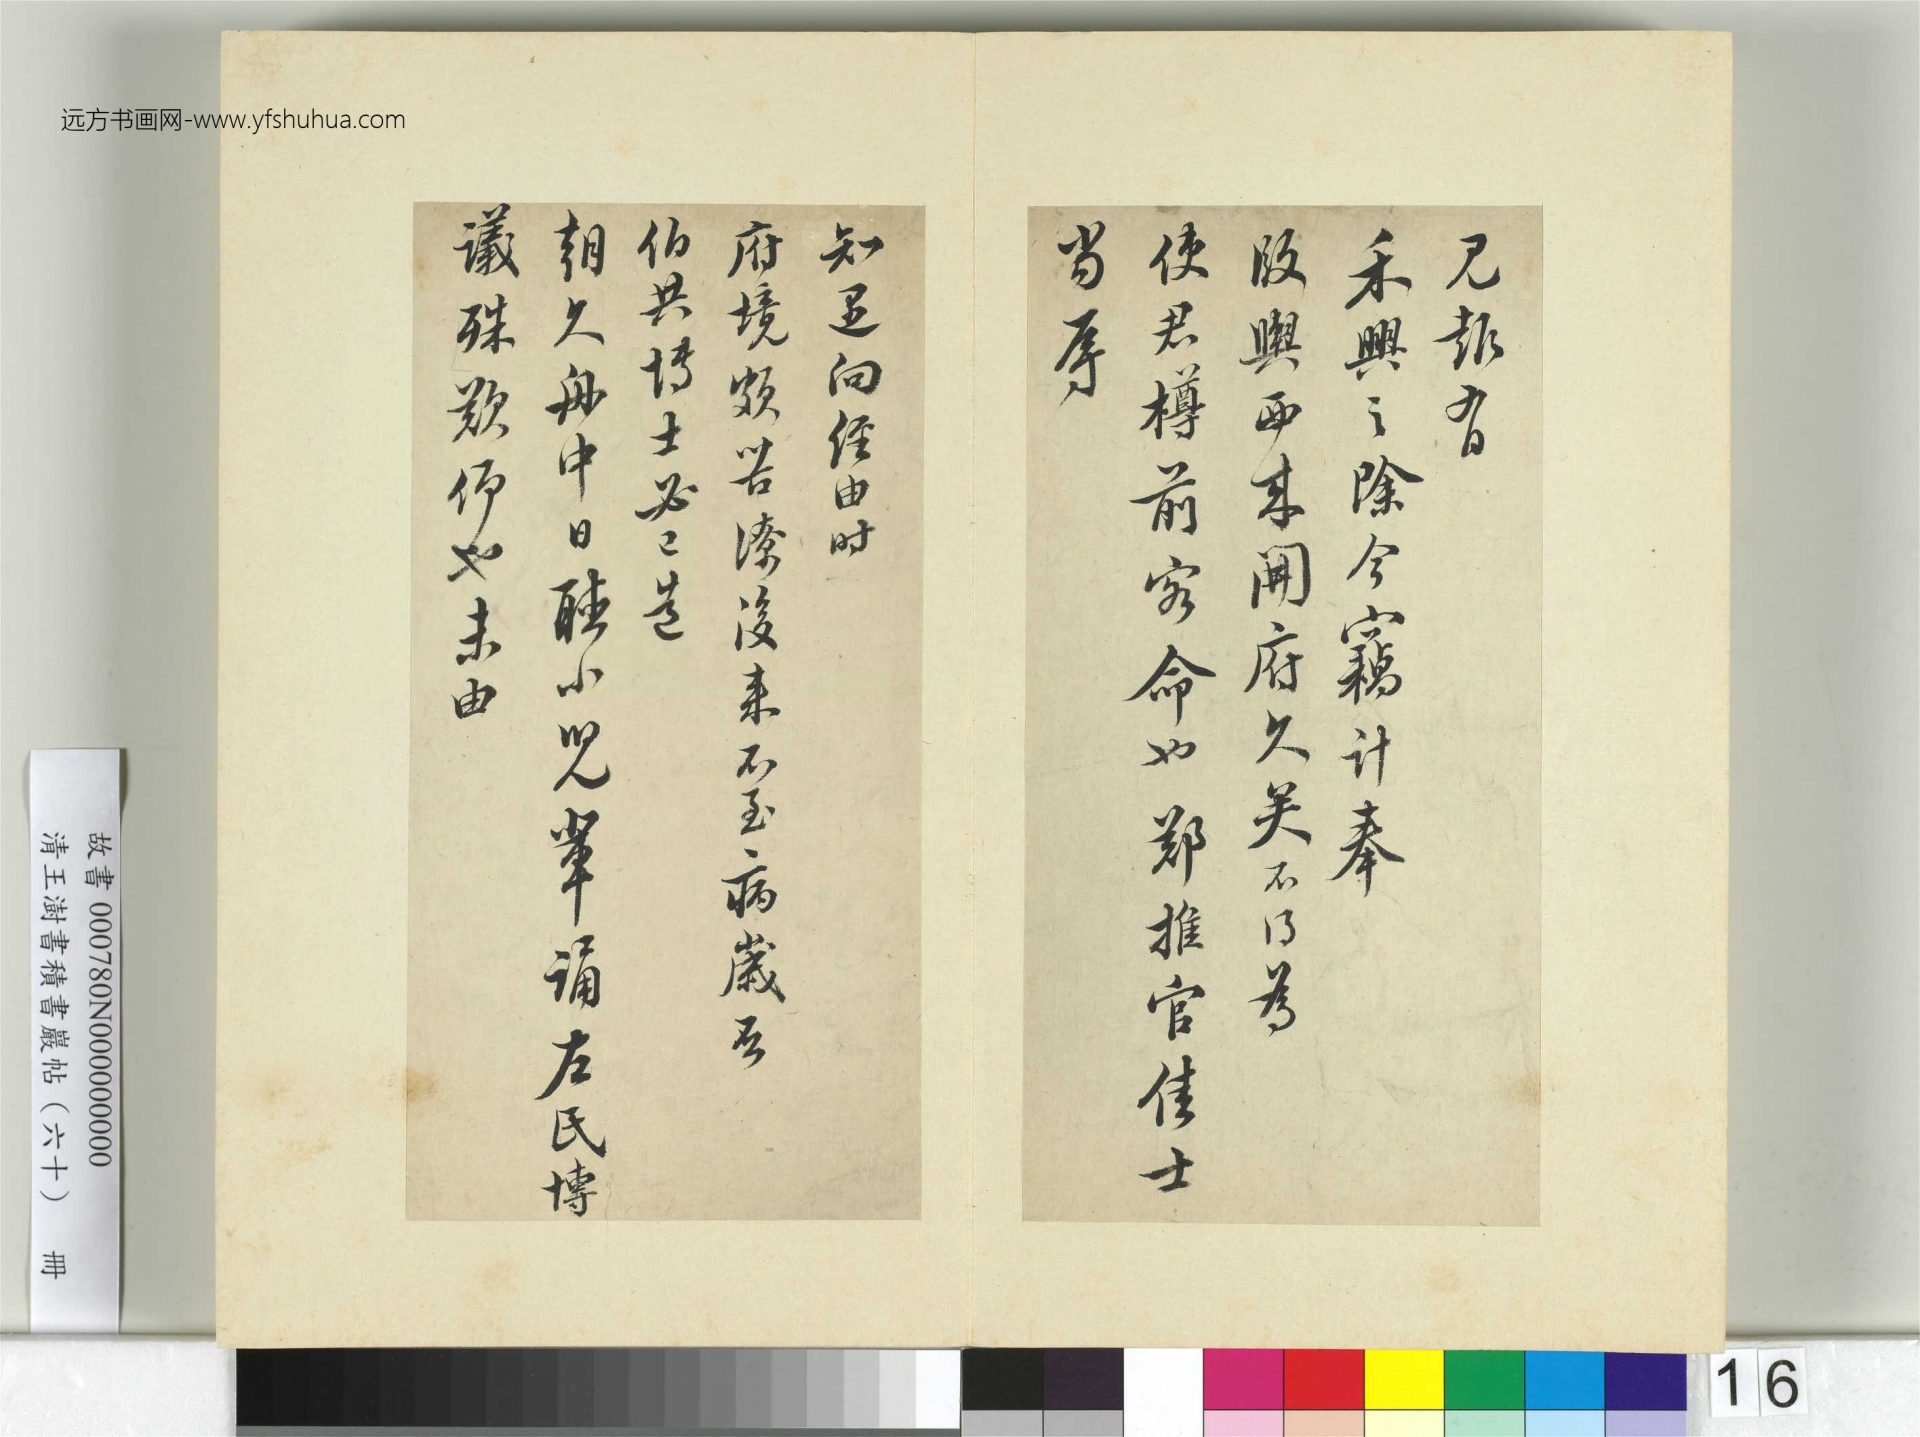 远方书画网-www.yfshuhua.com
见报有
禾興之除今竊計奉
版輿西來開府久矣不得為
使君樽前客命也鄭推官佳士
當辱
知遇向經由時
府境頗苦潦後來不至病歲否
伯共博士必已造
朝久舟中日聽小兒輩誦左氏博
議殊歎仰也未由
故書 000780N000000000
清王澍書積書巖帖(六十) 冊
16